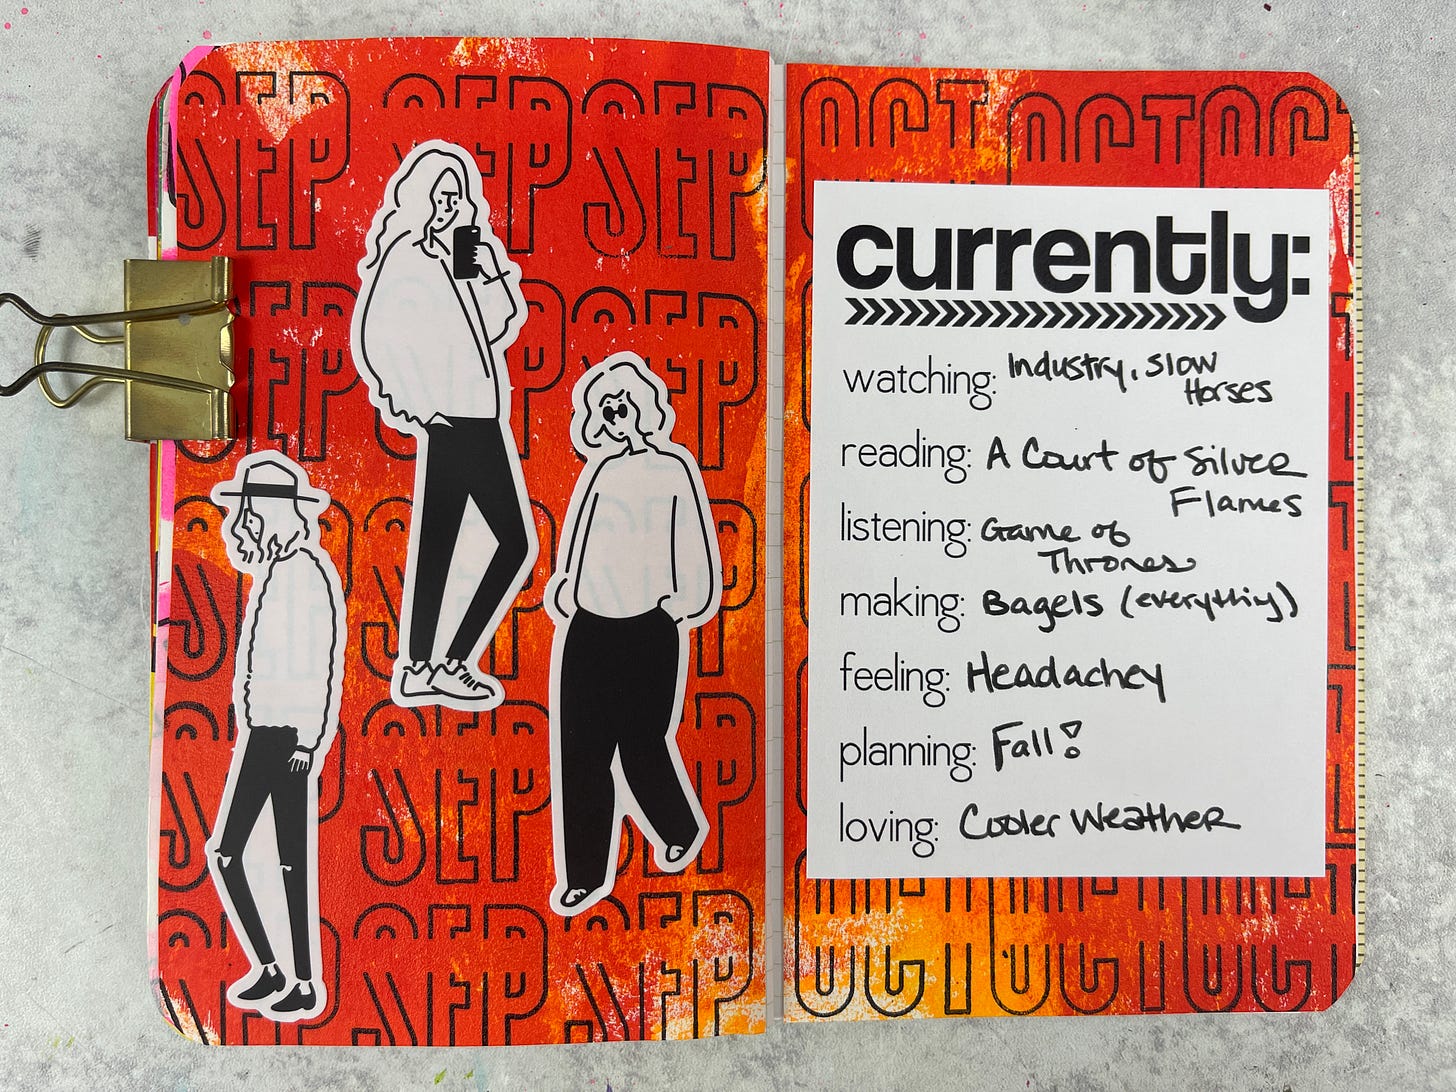 SEP SEP SEP
SEP SEP SEP
SEP SEP SEP
SEP SEP SEP
SEP SEP SEP
OCT OCT OCT
currently:
watching: Industry, Slow
Horses
reading: A Court of Silver
Flames
listening: Game of
Thrones
making: Bagels (everything)
feeling: Headachey
planning: Fall!
loving: Cooler Weather
OCT OCT OCT